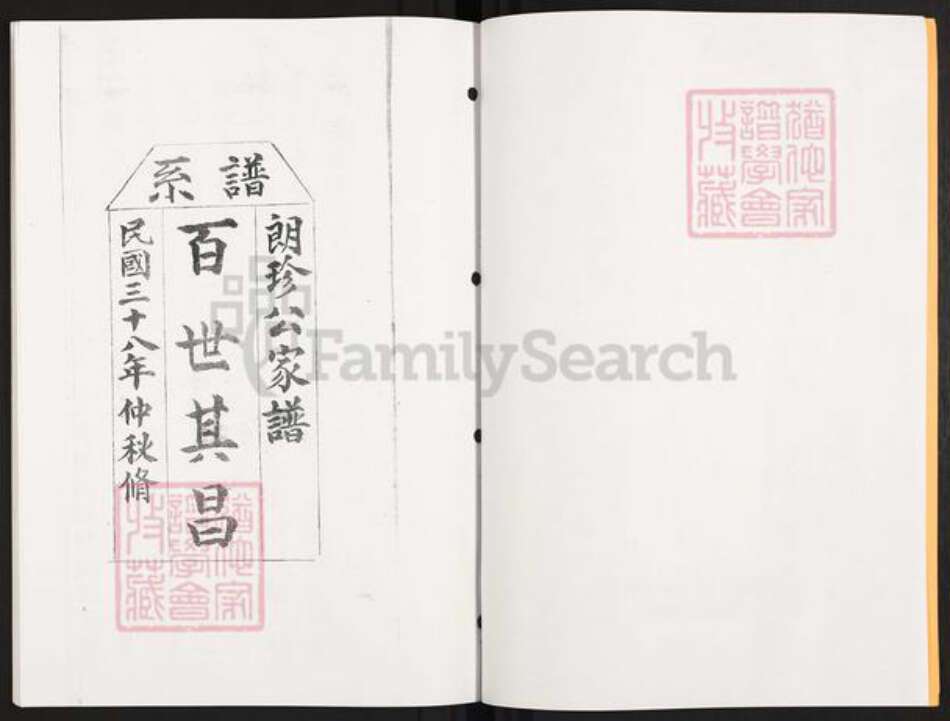 譜系
朗珍公家譜
百世其昌
民國三十八年仲秋脩
猶他家
譜學會
收藏
猶他家
譜學會
收藏
FamilySearch